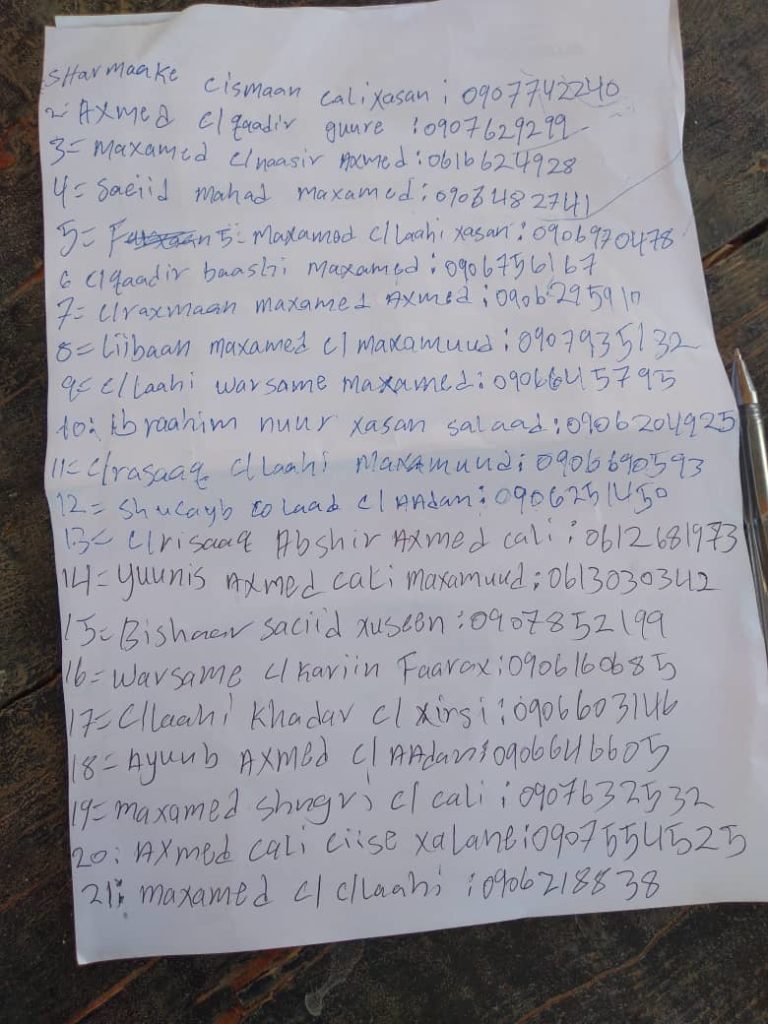 SHarmaake cismaan calixasan : 0907742240
2: Axmed c/qaadir guure : 0907629299
3= maxamed c/naasir Axmed : 0616624928
4= saciid mahad maxamed : 0906482741
5= 5= maxamed c/laahi xasan : 0906970478
6 c/qaadir baashi maxamed : 0906756167
7= c/raxmaan maxamed Axmed : 0906295910
8= Liibaan maxamed c/ maxamuud : 0907935132
9= c/laahi warsame maxamed : 0906645795
10: ibraahim nuur xasan salaad : 0906204925
11= c/rasaaq c/laahi maxamuud : 0906690593
12= shucayb colaad c/AAdan : 0906251450
13= c/risaaq Abshir Axmed cali : 0612681973
14= yuunis Axmed cali maxamuud : 0613030342
15= Bishaar saciid xuseen : 0907852199
16= warsame c/kariin Faarax : 0906160685
17= c/laahi khadar c/xirsi : 0906603146
18= Ayuub Axmed c/AAdan : 0906646605
19= maxamed shugri c/cali : 0907632532
20: Axmed cali ciise xalane : 0907554525
21: maxamed c/ c/laahi : 0906218838